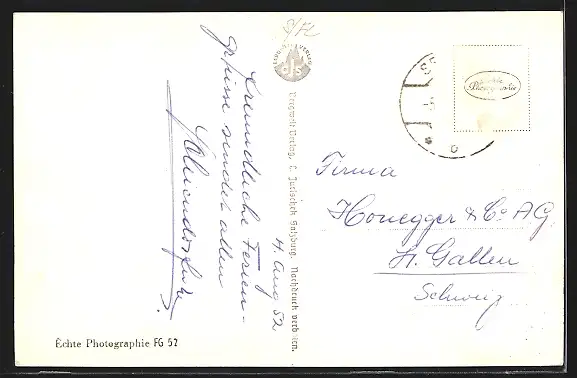 5/12
4. Aug 52
Freundliche Ferien-
grüsse sendet allen
Bergwelt-Verlag, C. Jurischek Salzburg. Nachdruck verboten.
Echte
Photographie
Firma
Honegger & Co. AG.
St. Gallen
Schweiz
Echte Photographie FG 52